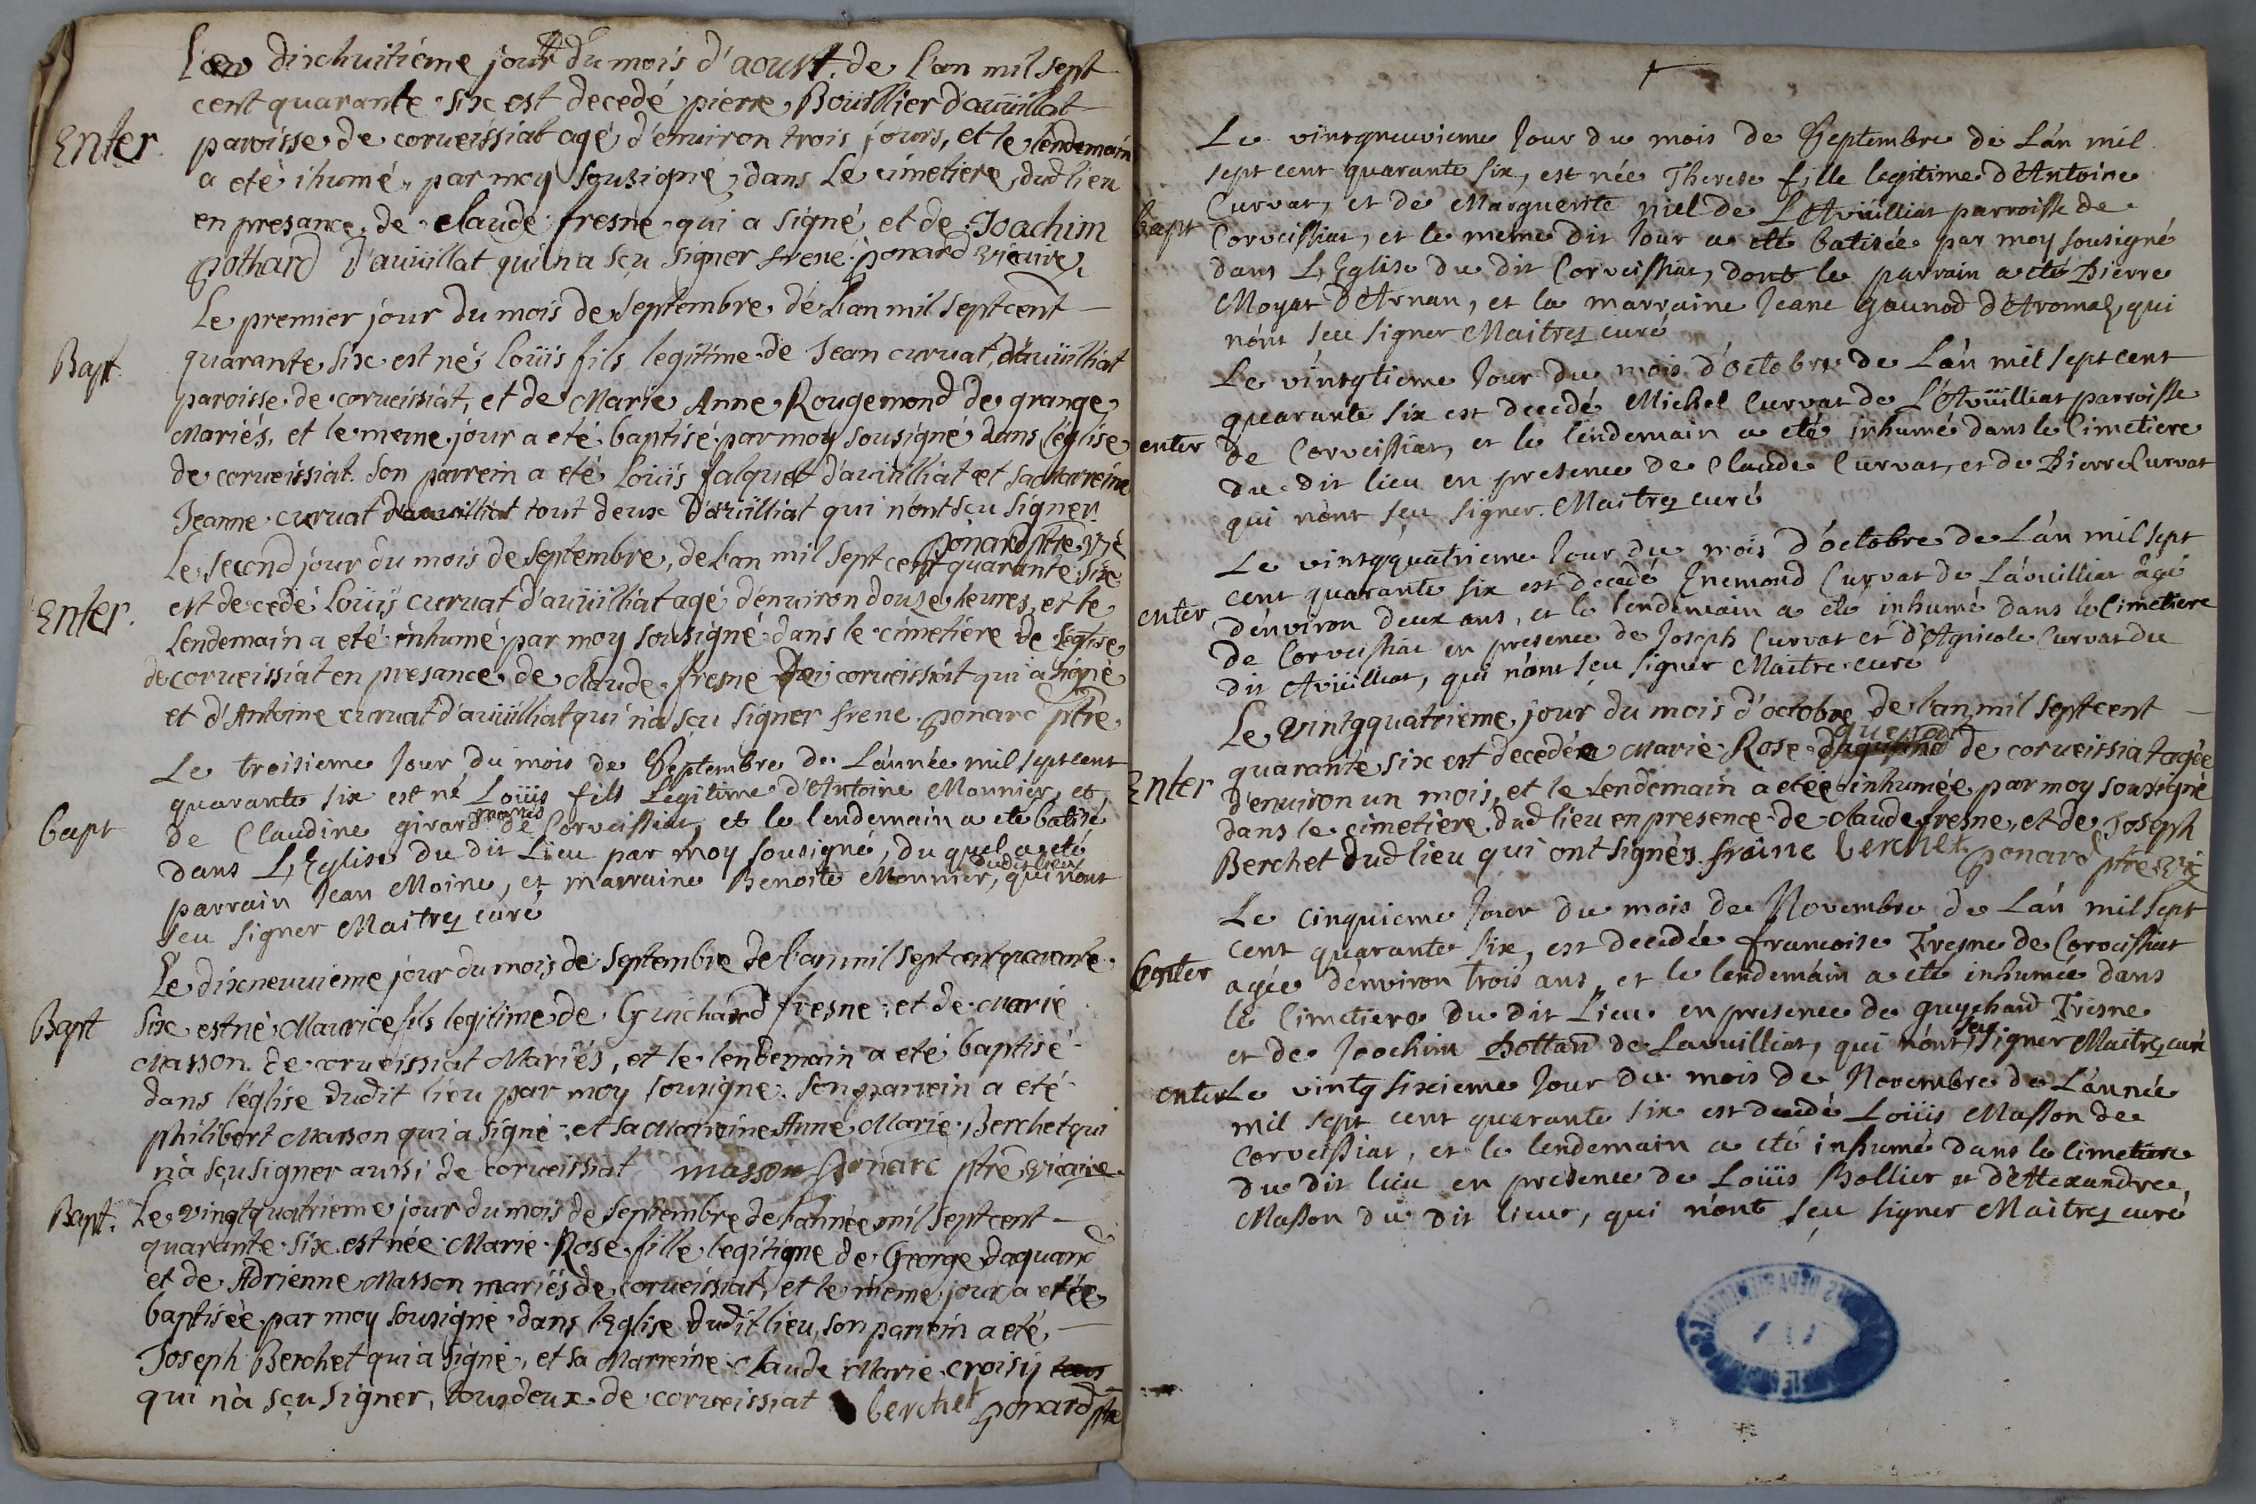 dixhuitiéme jour du mois d'aoust de l'an mil sept
cent quarante six est decedé pierre Boüillier d'auüillat
Enter
paroisse de corueissiat agé d'enuiron trois jours, et le lendemain
a eté ihumé par moy sousigné dans le cimetiere dud lieu
en presance de claude fresne qui a signé et de Joachim
pothard d'auüillat qui n'a sçu signer frene ponard vicaire
Le premier jour du mois de septembre de l'an mil sept cent
Bapt
quarante six est né loüis fils legitime de Jean curuat d'auüilliat
paroisse de corueissiat, et de Marie Anne Rougemond de grange
Mariés, et le meme jour a eté baptisé par moy sousigné dans leglise
de corueissiat son parrein a eté Loüis falquet d'auüilliat et sa marreine
Jeanne curuat d'auüilliat tout deux d'auüilliat qui n'ont sçu signer
ponard ptre vic
Le second jour du mois de septembre, de l'an mil sept cent quarante six
Enter.
est decedé Loüis curuat d'auüilliat agé d'enuiron douze heures, et le
lendemain a eté inhumé par moy sousigné dans le cimetiere de leglise
de corueissiat en presance de claude fresne de corueissiat qui a signé
et d'Antoine curuat d'auüilliat qui n'a sçu signer frene ponard ptre
Le troisieme Jour du mois de Septembre de L'année mil sept cent
quarante six est né Loüis fils Legitime d'Antoine Monnier, et
bapt
mariés
de Claudine girard de Corveissiat, et le lendemain a eté batisé
dans L'Eglise du dit Lieu par moy sousigné, du quel a eté
dudit lieu
parrain Jean Moine, et marraine Benoite Monnier, qui n'ont
seu signer Maitrez curé
Le dixneuuieme jour du mois de septembre de l'an mil sept cent quarante
Bapt
six est né Maurice fils legitime de Guichard fresne et de Marie
Masson de corueissiat Mariés, et le lendemain a eté baptisé
dans l'église dudit lieu par moy sousigné son parrein a eté
philibert Masson qui a signé et sa Marreine Anne Marie Berchet qui
n'a sçu signer aussi de corueissiat masson ponard ptre vicaire
Bapt.
Le vingtquatrieme jour du mois de septembre de l'année mil sept cent
quarante six est née Marie Rose fille legitime de George daquand
et de Adrienne Masson mariés de corueissiat, et le meme jour a etée
baptisée par moy sousigné dans l'Eglise dudit lieu, son parrein a eté
Joseph Berchet qui a signé, et sa Marreine claude Marie croisy tous
qui n'a sçu signer, tous deux de corueissiat berchet ponard ptre
Le vintqneuvieme Jour du mois de Septembre de L'an mil
sept cent quarante six, est née Therese fille legitime d'Antoine
Curvat, et de Marguerite niel de L'Avüilliat parroisse de
bapt
Corveissiat, et le meme dit Jour a eté batisée par moy sousigné
dans L'Eglise du dit Corveissiat, dont le parrain a eté Pierre
Moyat d'Arnan, et la marraine Jeane gaunod d'Aromaz, qui
n'ont seu signer Maitrez curé
Le vintqtieme Jour du mois d'octobre de L'an mil sept cent
quarante six est decedé Michel Curvat de L'Avüilliat parroisse
enter
de Corveissiat, et le lendemain a eté inhumé dans le Cimetiere
du dit lieu en presence de Claude Curvat, et de Pierre Curvat
qui n'ont seu signer. Maitrez curé
Le vintqquatrieme Jour du mois d'octobre de L'an mil sept
cent quarante six est decedé Enemond Curvat de L'avuilliat agé
enter
d'environ deux ans, et le lendemain a eté inhumé dans le Cimetiere
de Corveissiat en presence de Joseph Curvat et d'Agricole Curvat du
dit Avüilliat, qui n'ont seu signer Maitre curé
Le vintgquatrieme jour du mois d'octobre de l'an mil sept cent
quarante six est decedée Marie Rose de corueissiat agée
Enter
d'enuiron un mois, et le lendemain a etée inhumée par moy sousigné
dans le cimetiere dud lieu en presence de claude fresne, et de Joseph
Berchet dud lieu qui ont signés fraine berchet ponard ptre vic
Le cinquieme Jour du mois de Novembre de L'an mil sept
cent quarante six, est decedée francoise Fresne de Corveissiat
Enter
agée d'environ trois ans, et le lendemain a eté inhumée dans
le Cimetiere du dit Lieu en presence de guychard Fresne
seu
et de Joachim Pottard de Lavuilliat, qui n'ont signer Maitrez curé
enter
Le vintq sixieme Jour du mois de Novembre de L'année
mil sept cent quarante six est decedé Loüis Masson de
Corveissiat, et le lendemain a eté inhumé dans le Cimetiere
du dit lieu en presence de Loüis Bollier et d'Alexandre
Masson du dit lieu, qui n'ont seu signer Maitrez curé